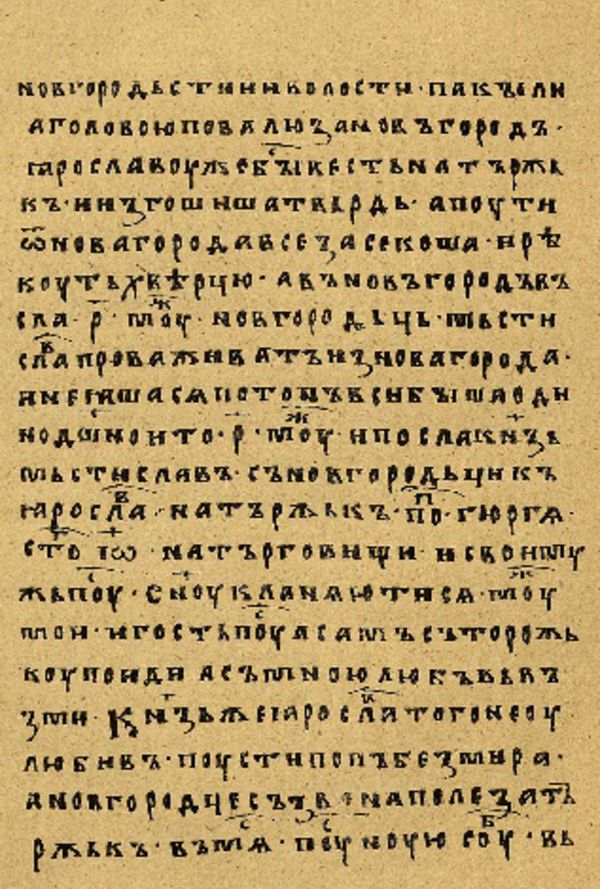 новгородьстии волости · пакꙑ ли
а головою повалю за новъгородъ ·
ꙗрославоу же бꙑвъ есть на тържь
къ · и изгошиша твьрдь · а поути
ѿ новагорода все засекоша · и рѣ
коу тьхвѣрцю · а въ новъгородъ въ
сла · р҃ · моуж новгородьць · мьсти
слава проваживатъ из новагорода ·
и не ꙗшасѧ по томъ въси бꙑша оди
нодшно и то · р҃ · моуж · и посла кнѧзь
мьстиславъ · съ новгородьци къ
ꙗрослав · на тържькъ · поп · гюргѧ ·
сто іѡ · на търговищи · и свои моу
жь поус · сноу кланѧютисѧ · моуж
мои · и гость поус а самъ съ торожь
коу поиди а съ мною любъвь въ
зми · кнѧзь же ꙗрослав того не оу
любивъ · поусти попъ без мира ·
а новгородце съзвон на поле за тъ
ржькъ · въ мѧс · поус ноую соуб · вь